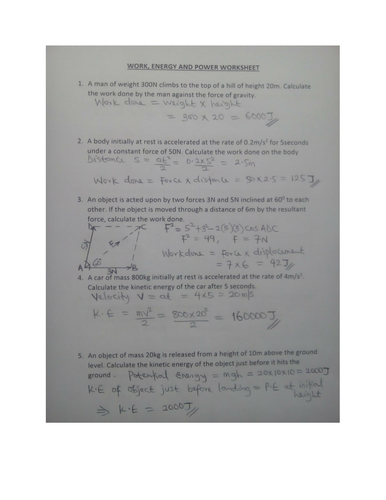 WORK, ENERGY AND POWER WORKSHEET
1. A man of weight 300N climbs to the top of a hill of height 20m. Calculate
the work done by the man against the force of gravity.
Work done = weight x height
= 300 x 20 = 6000J
2. A body initially at rest is accelerated at the rate of 0.2m/s² for 5seconds
under a constant force of 50N. Calculate the work done on the body
Distance S = at²/2 = 0.2x5²/2 = 2.5m
Work done = Force x distance = 50 x 2.5 = 125J
3. An object is acted upon by two forces 3N and 5N inclined at 60⁰ to each
other. If the object is moved through a distance of 6m by the resultant
force, calculate the work done.
F² = 5² + 3² - 2(5)(3) cos ABC
F² = 49, F = 7N
Work done = force x displacement
= 7 x 6 = 42J
A 3N B
4. A car of mass 800kg initially at rest is accelerated at the rate of 4m/s².
Calculate the kinetic energy of the car after 5 seconds.
Velocity V = at = 4 x 5 = 20m/s
K.E = mv²/2 = 800x20²/2 = 160000J
5. An object of mass 20kg is released from a height of 10m above the ground
level. Calculate the kinetic energy of the object just before it hits the
ground. Potential Energy = mgh = 20x10x10 = 2000J
K.E of object just before landing = P.E at initial
height
⇒ K.E = 2000J